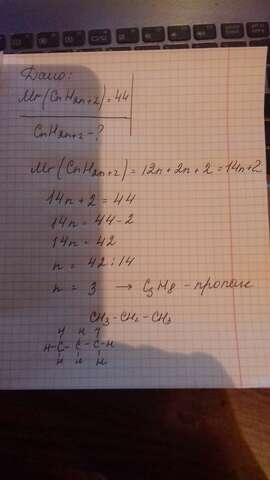 Дано:
Mr(CnH2n+2)=44
CnH2n+2-?
Mr(CnH2n+2)=12n+2n+2=14n+2
14n+2=44
14n=44-2
14n=42
n=42:14
n=3 → C3H8-пропан
CH3-CH2-CH3
H H H
H-C-C-C-H
H H H